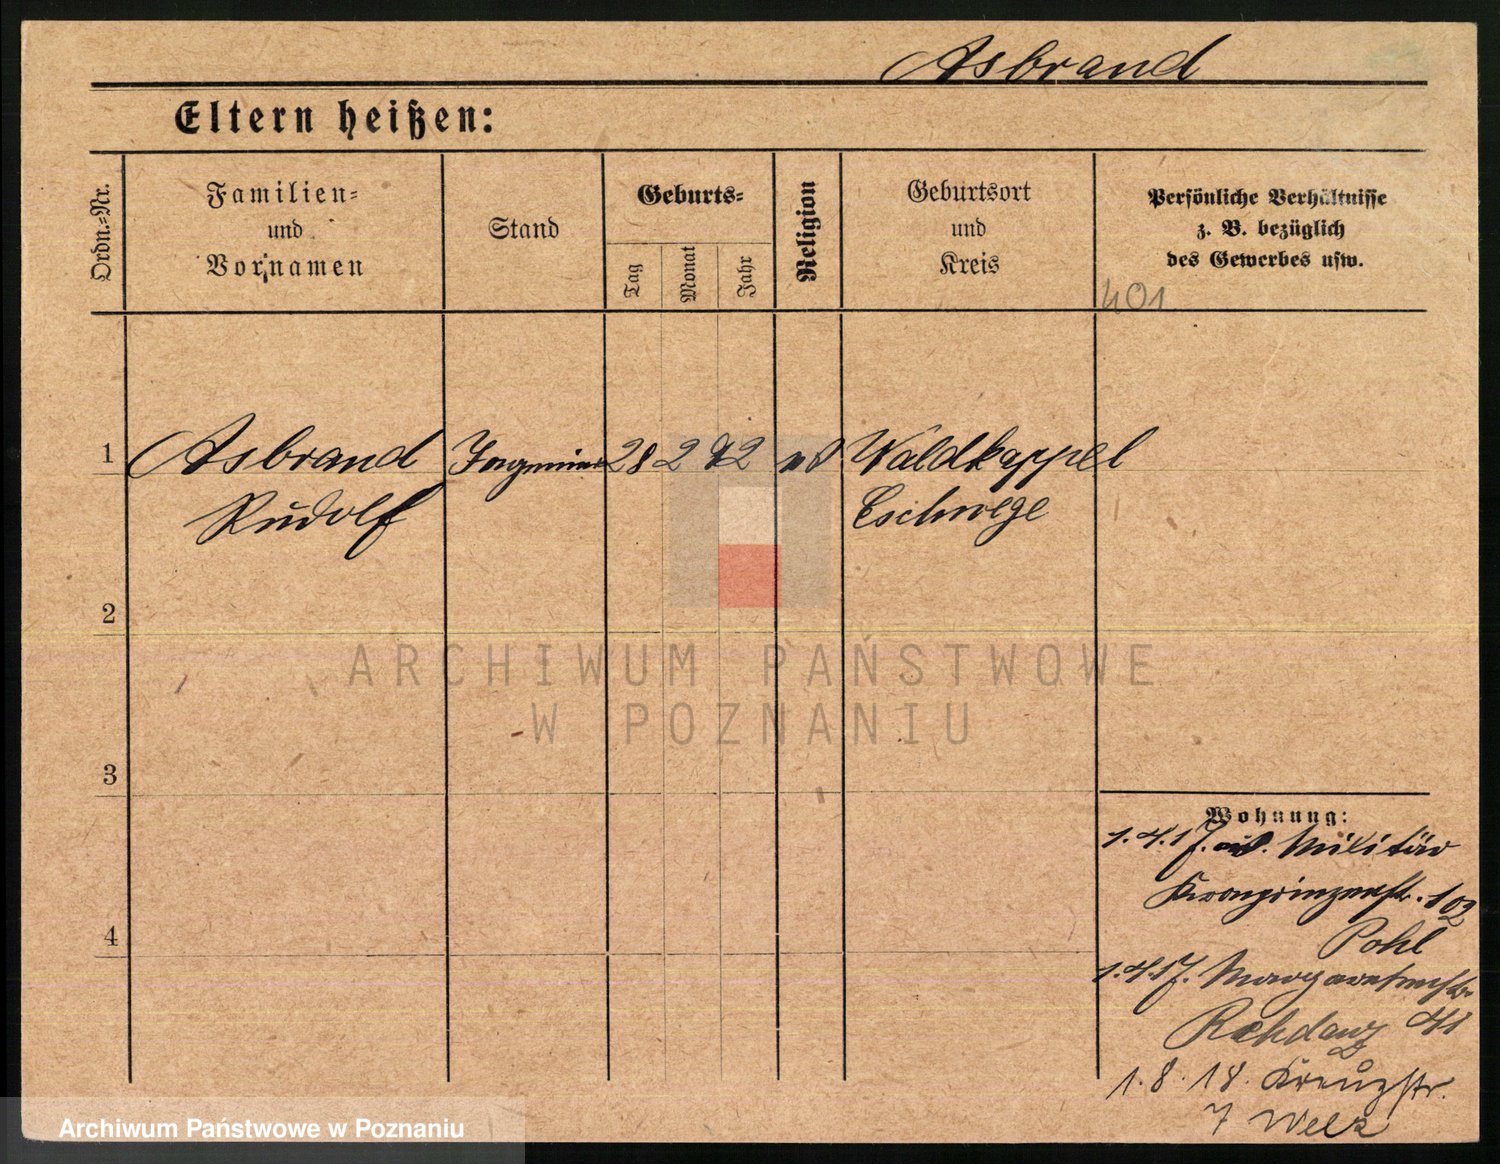 Asbrand
Eltern heißen:
Ordn.-Nr.
Familien-
und
Vornamen
Stand
Geburts-
Tag
Monat
Jahr
Religion
Geburtsort
und
Kreis
Persönliche Verhältnisse
z. B. bezüglich
des Gewerbes usw.
401
1
Asbrand
Rudolf
28 2 72
Waldkappel
Eschwege
2
3
4
ARCHIWUM PAŃSTWOWE
W POZNANIU
Wohnung:
1.4.17. Militär
Kronprinzenstr. 102
Pohl
1.4.17. Margaretenstr.
Rehdanz 41
1.8.18. Kreuzstr.
7 Welz
Archiwum Państwowe w Poznaniu